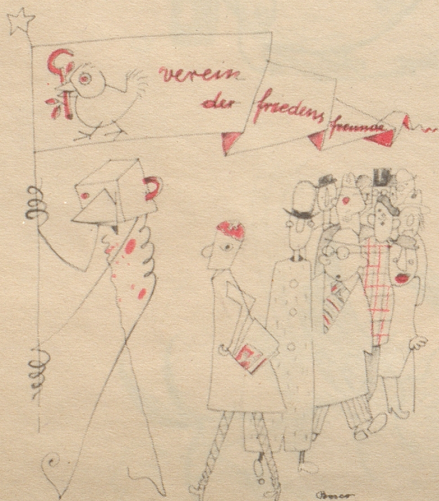 verein
der friedens freunde
Bosco